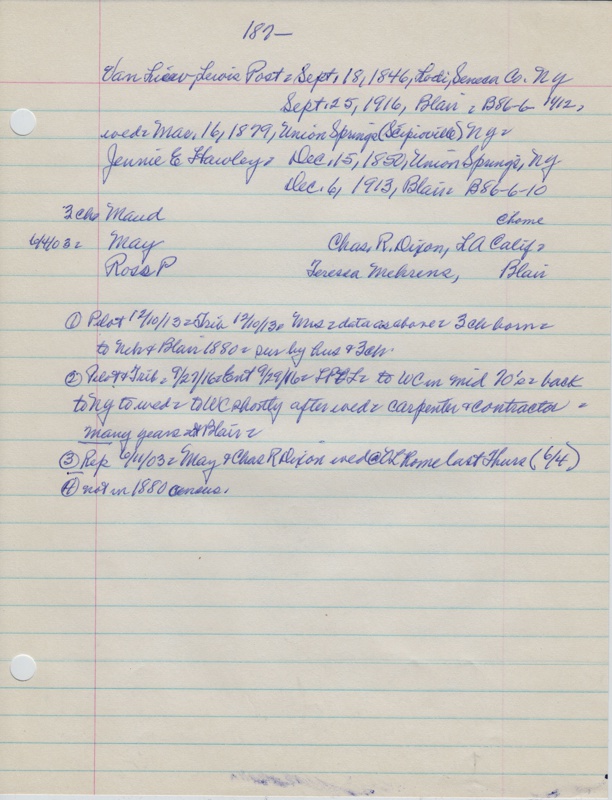 187—
Van Liew, Lewis Post = Sept. 18, 1846, Lodi, Seneca Co. NY
Sept. 25, 1916, Blair = B86-6- 1912,
wed = Mar. 16, 1879, Union Springs (Scipioville) NY =
Jennie E Hawley = Dec. 15, 1850, Union Springs, NY
Dec. 6, 1913, Blair = B86-6-10
3 chs Maud @ home
6/4/03 = May Chas. R. Dixon, LA Calif =
Ross P Teressa Mehrens, Blair
① Pilot 12/10/13 = Trib 12/10/13 = Mrs = data as above = 3 ch born =
to Neb & Blair 1880 = sur by hus & 3 ch
② Pilot & Trib = 9/27/16 = Ent 9/29/16 = to WC in mid 70's = back
to NY to wed = to WC shortly after wed = carpenter & contractor =
many years = Blair =
③ Rep 6/11/03 = May & Chas R Dixon wed @ home last Thurs (6/4)
④ not in 1880 census.